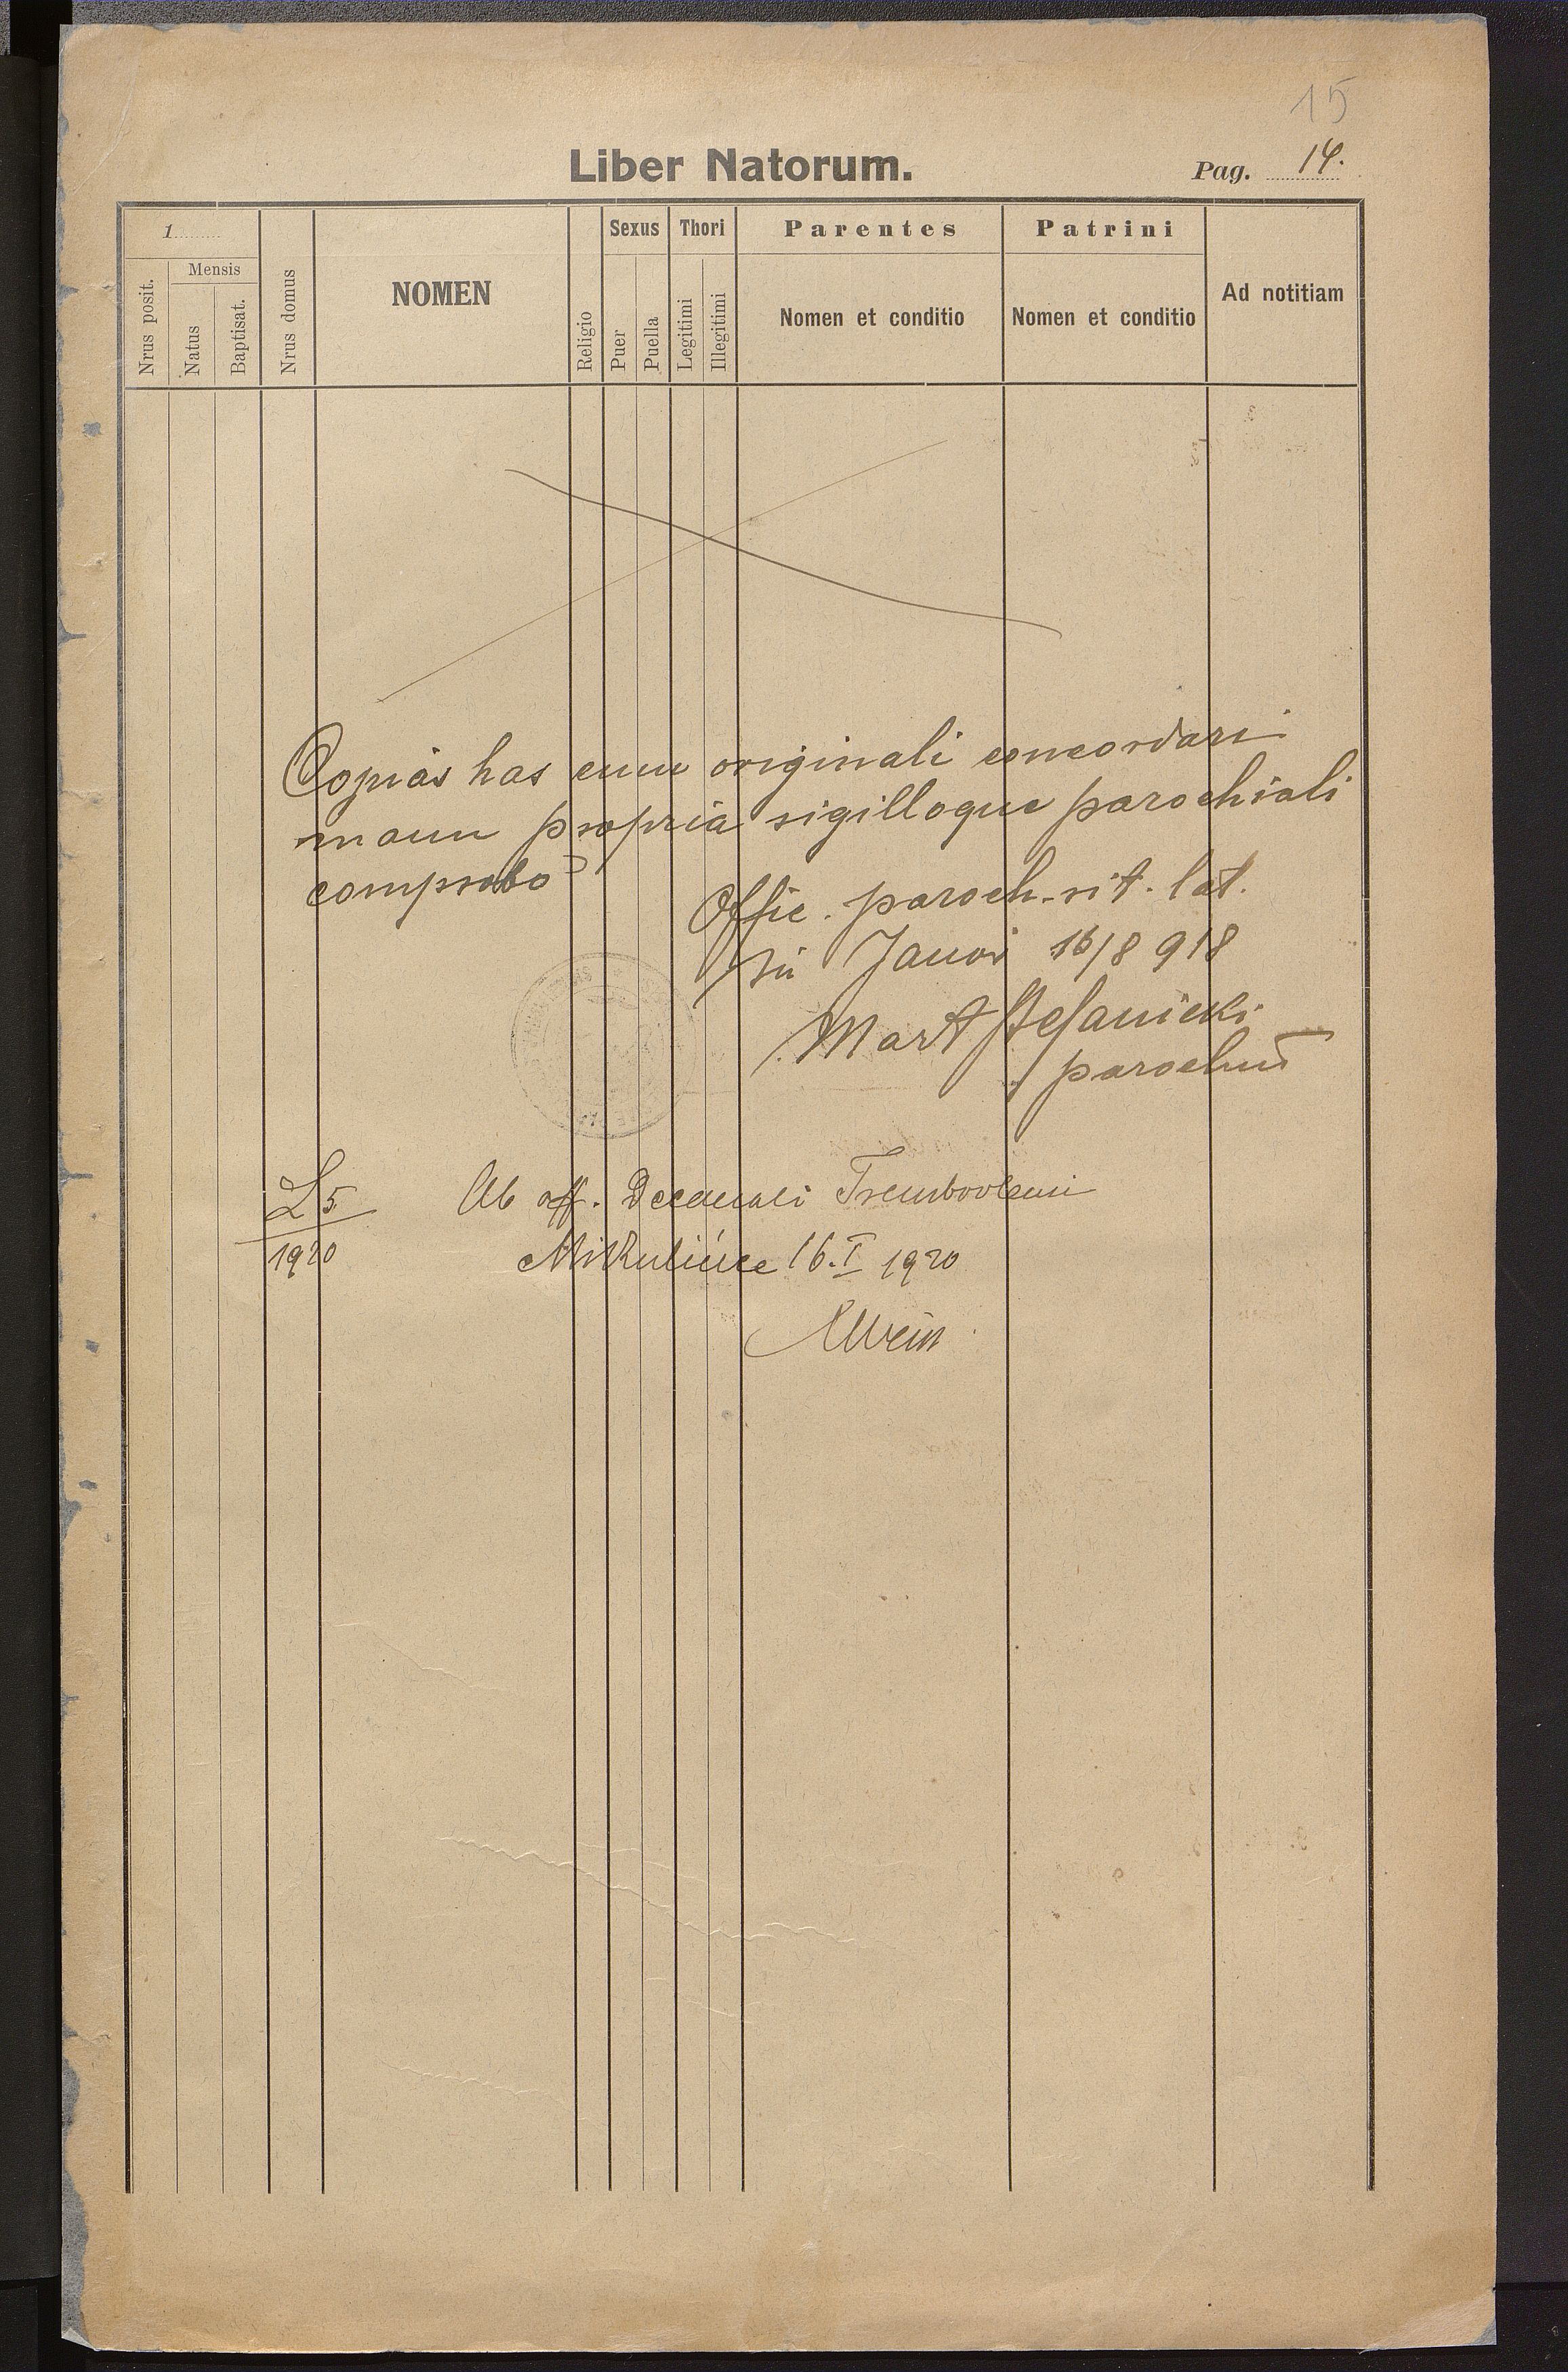 15
Liber Natorum.
Pag. 14.
1
Nrus posit.
Mensis
Natus
Baptisat.
Nrus domus
NOMEN
Religio
Sexus
Puer
Puella
Thori
Legitimi
Illegitimi
Parentes
Nomen et conditio
Patrini
Nomen et conditio
Ad notitiam
Copias has cum originali concordari
manu propria sigilloque parochiali
comprobo
Offic. paroch. rit. lat.
in Janów 16/8 918
Mart Stefanicki
parochus
L 5
1920
Ab off. Decanali Tremboolensi
Mikulińce 16. I 1920